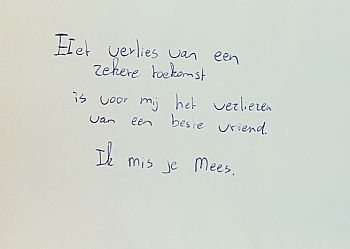 Het verlies van een
zekere toekomst
is voor mij het verliezen
van een beste vriend.
Ik mis je Mees.